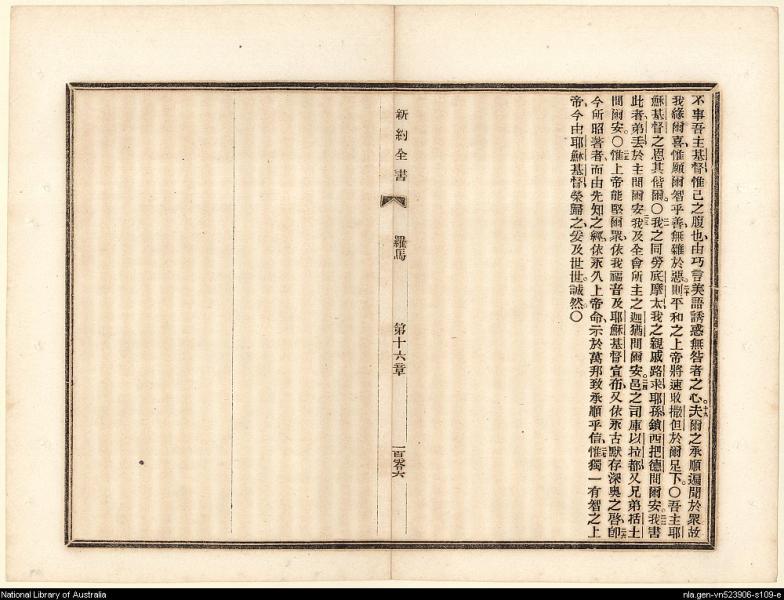 不事吾主基督惟己之腹也由巧言美語誘惑無咎者之心十九夫爾之承順遍聞於眾故
我緣爾喜惟願爾智乎善無雜於惡二十則平和之上帝將速敗撒但於爾足下〇吾主耶
穌基督之恩其偕爾〇我之同勞底摩太我之親戚路求耶孫鎖西把德問爾安我書
此者弟丟於主問爾安我及全會所主之迦猶問爾安邑之司庫以拉都又兄弟括土
問爾安〇惟上帝能堅爾眾依我福音及耶穌基督宣布又依永古默存深奧之啓卽
今所昭著者而由先知之經依永久上帝命示於萬邦致承順乎信惟獨一有智之上
帝今由耶穌基督榮歸之爰及世世誠然〇
新約全書
羅馬
第十六章
一百零六
National Library of Australia
nla.gen-vn523906-s109-e